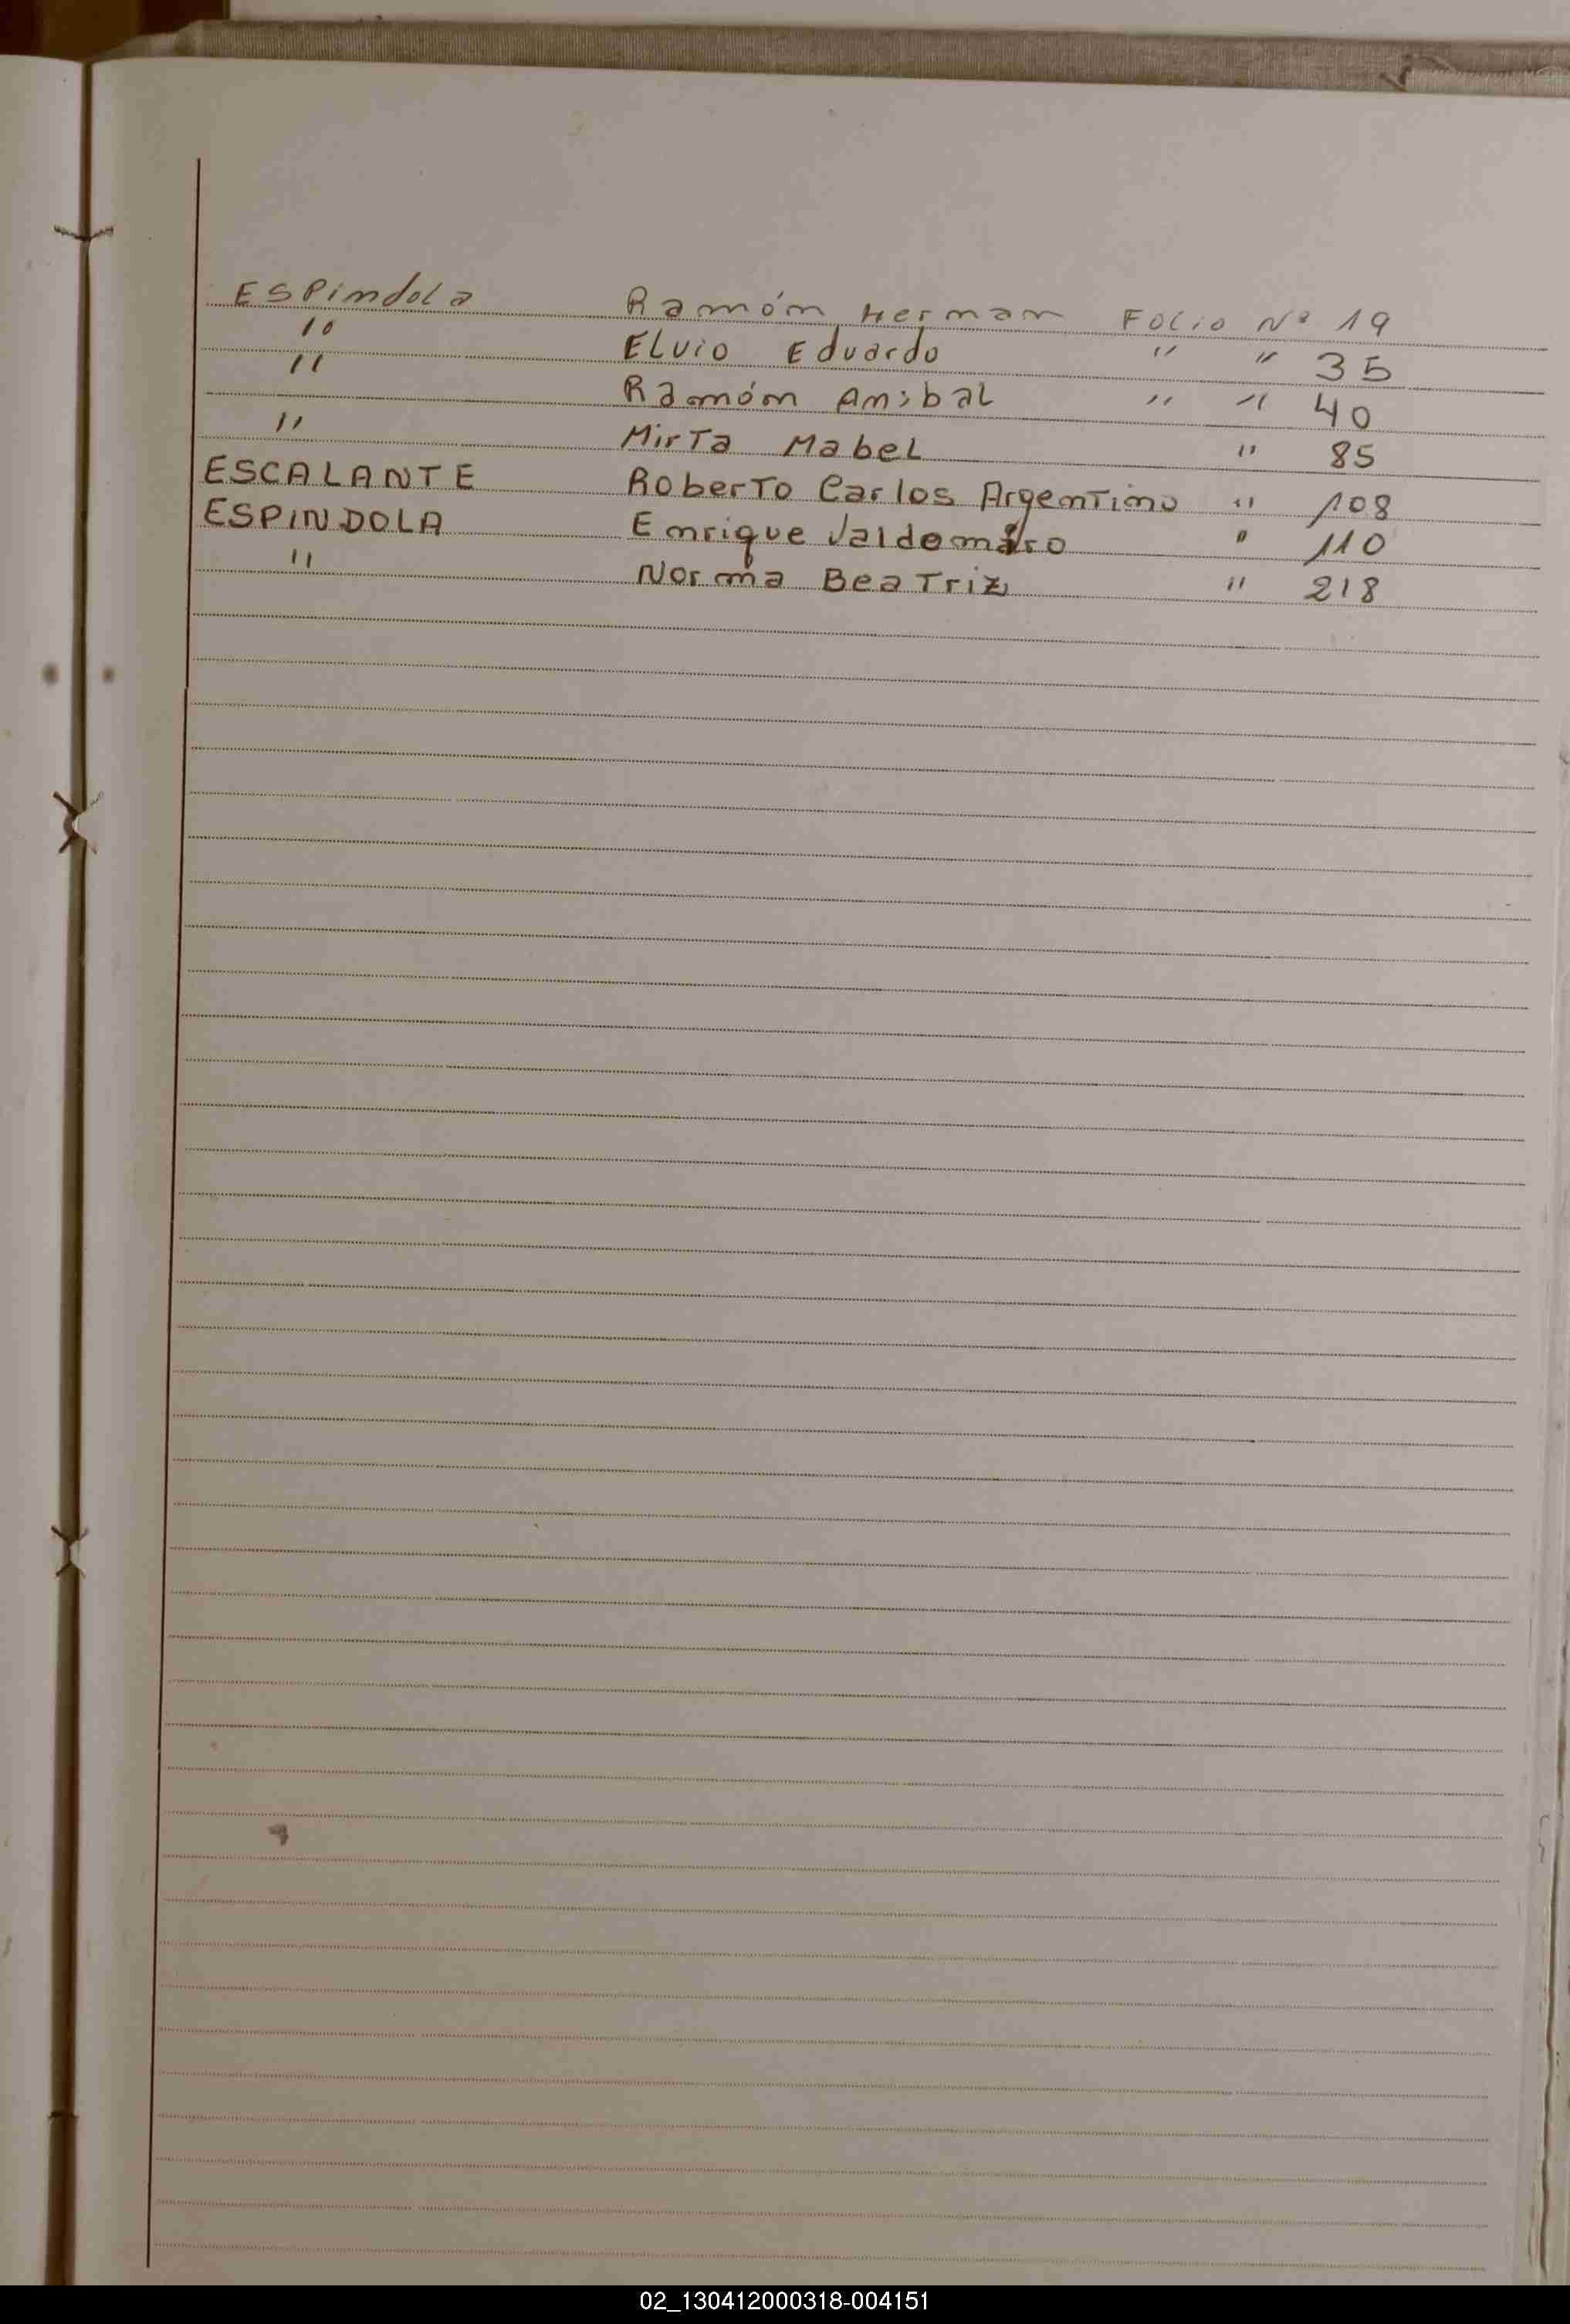 ESPindola Ramón Herman Folio Nº 19
" Elvio Eduardo " " 35
" Ramón Anibal " " 40
" Mirta Mabel " 85
ESCALANTE Roberto Carlos Argentino " 108
ESPINDOLA Enrique Valdomaro " 110
" Norma Beatriz " 218
02_130412000318-004151